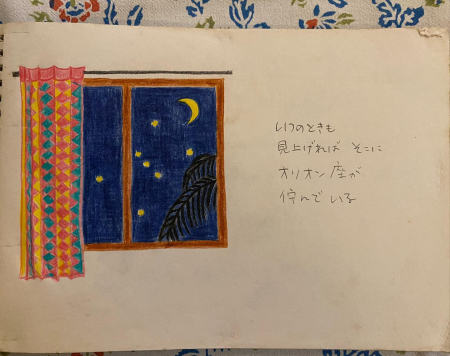 いつのときも
見上げれば そこに
オリオン座が
佇んで いる